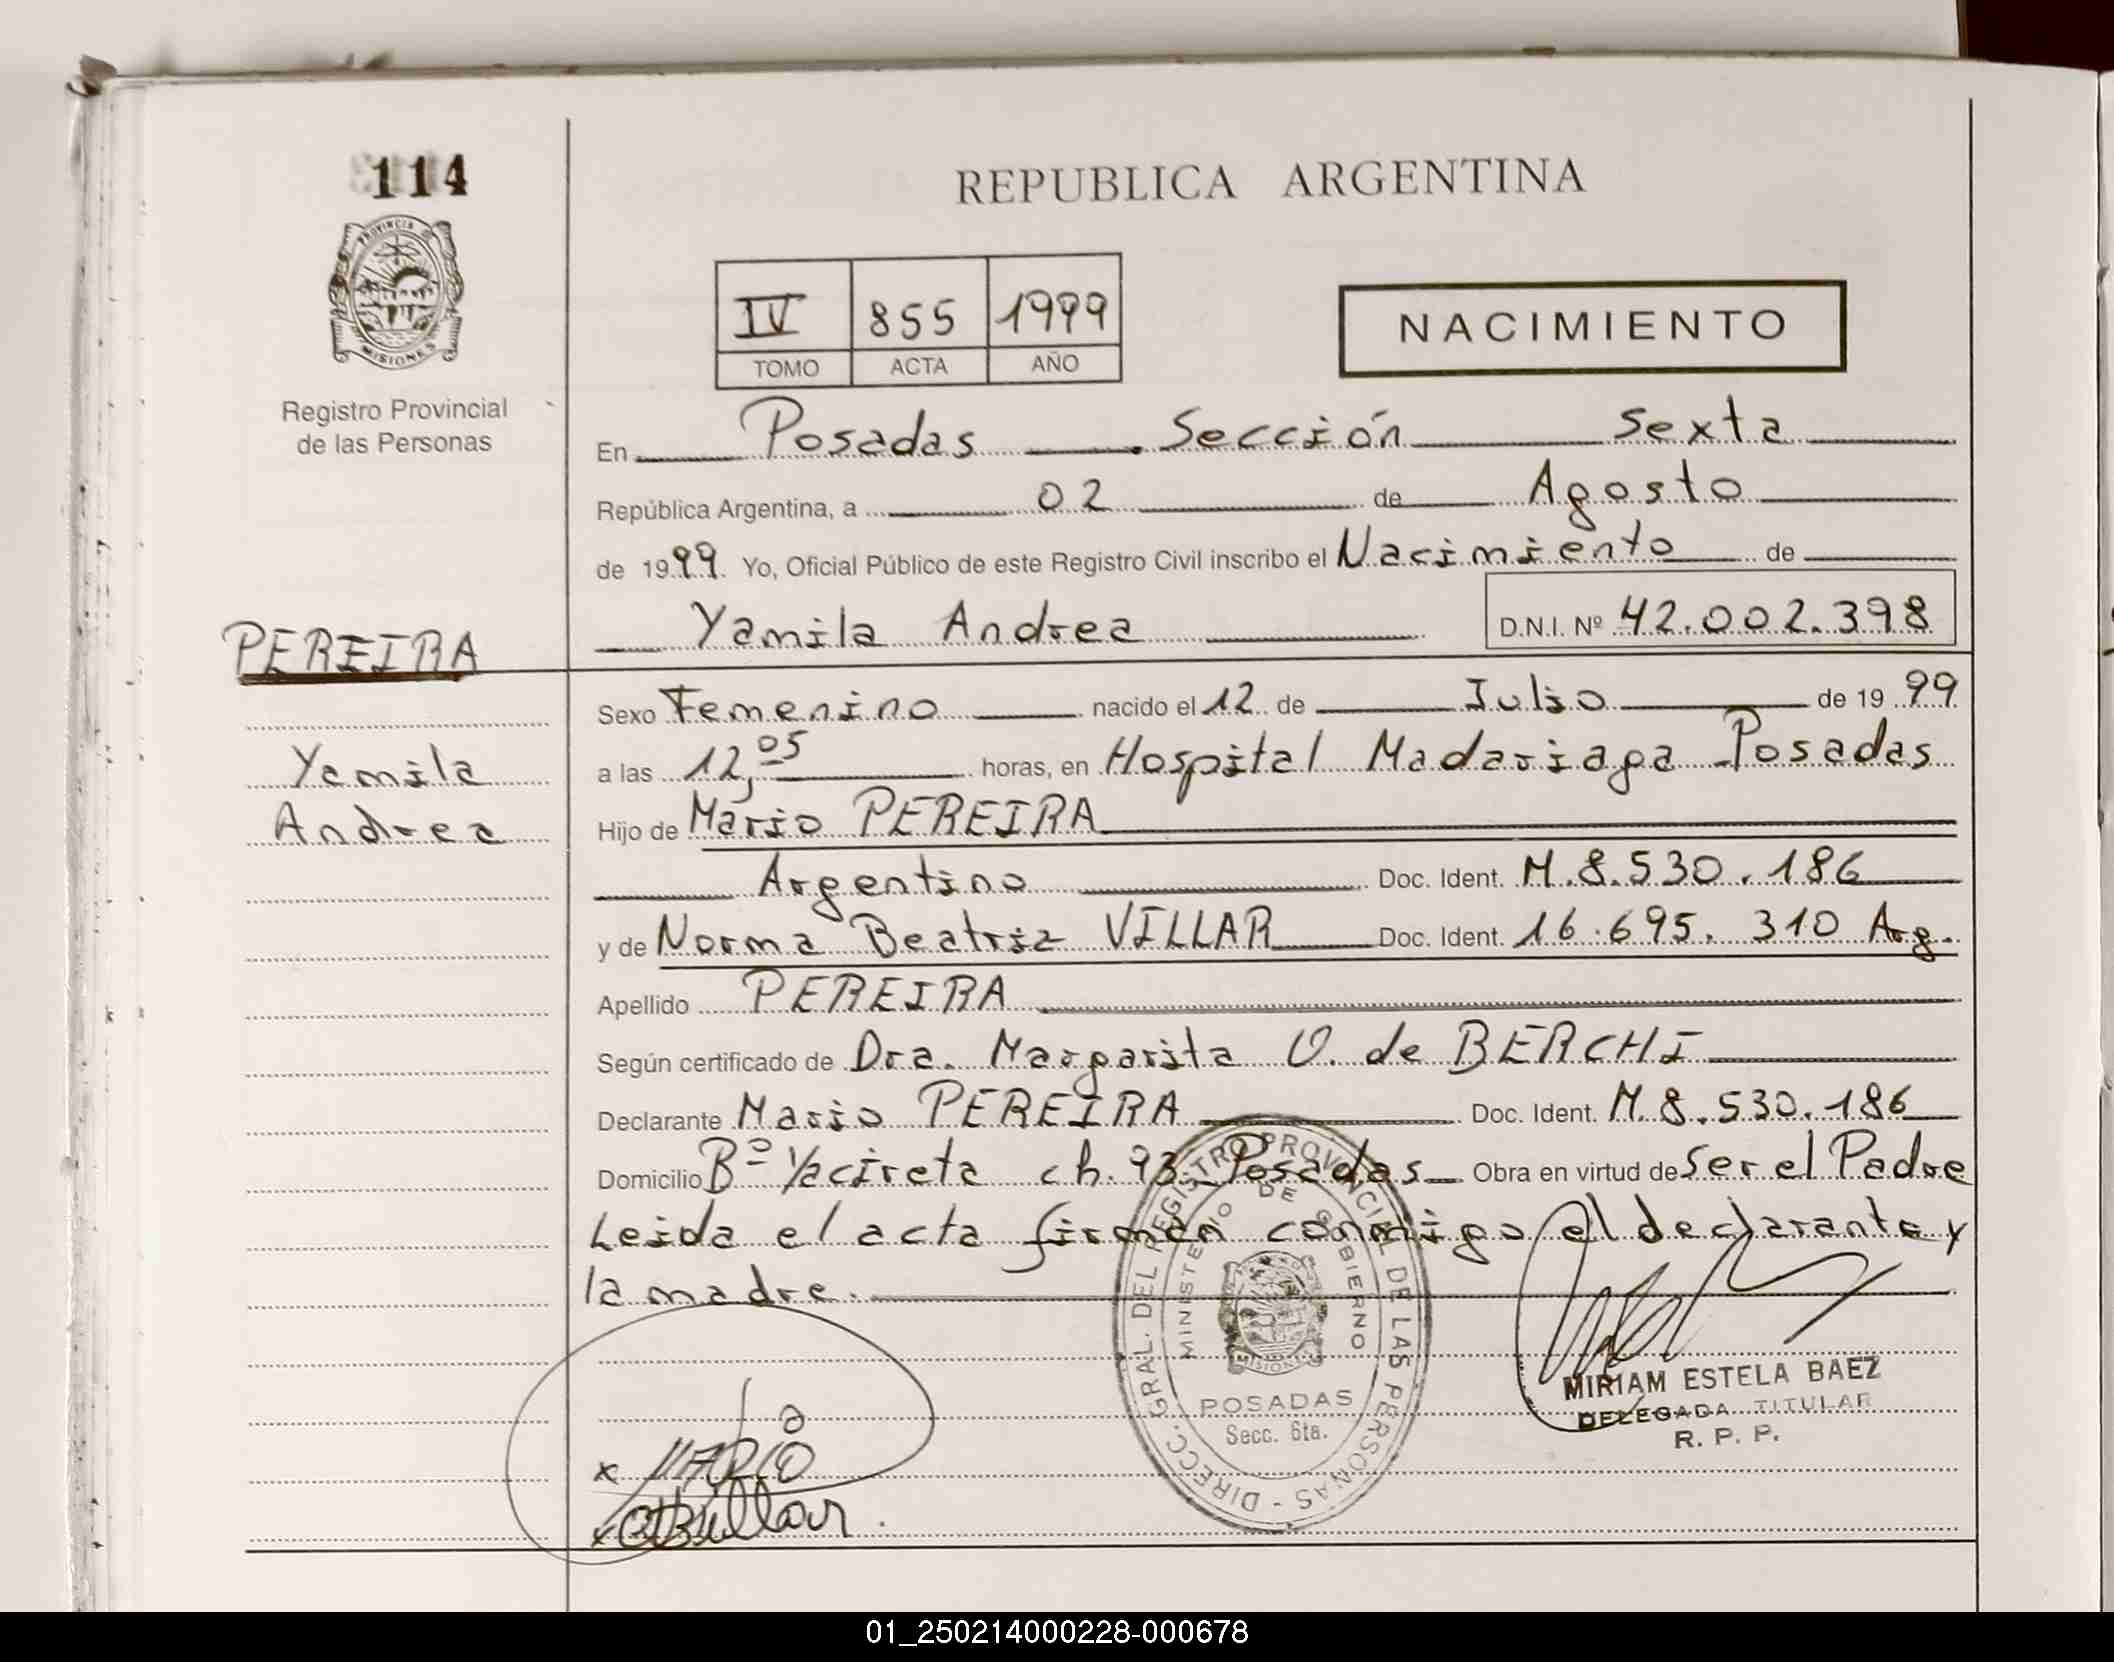 114
PROVINCIA DE
MISIONES
Registro Provincial
de las Personas
REPUBLICA ARGENTINA
IV 855 1999
TOMO ACTA AÑO
NACIMIENTO
En Posadas Sección Sexta
República Argentina, a 02 de Agosto
de 1999. Yo, Oficial Público de este Registro Civil inscribo el Nacimiento de
Yamila Andrea D.N.I. Nº 42.002.398
PEREIRA
Yamila
Andrea
Sexo Femenino nacido el 12 de Julio de 1999
a las 12,05 horas, en Hospital Madariaga - Posadas
Hijo de Mario PEREIRA
Argentino Doc. Ident. M.8.530.186
y de Norma Beatriz VILLAR Doc. Ident. 16.695.310 Arg.
Apellido PEREIRA
Según certificado de Dra. Margarita O. de BERCHI
Declarante Mario PEREIRA Doc. Ident. M.8.530.186
Domicilio Bº Yacireta ch. 93 - Posadas Obra en virtud de Ser el Padre
Leida el acta firman conmigo el declarante y
la madre.
DIRECC. GRAL. DEL REGISTRO PROVINCIAL DE LAS PERSONAS -
MINISTERIO DE GOBIERNO
MISIONES
POSADAS
Secc. 6ta.
MIRIAM ESTELA BAEZ
DELEGADA TITULAR
R. P. P.
x MARIO
x
01_250214000228-000678